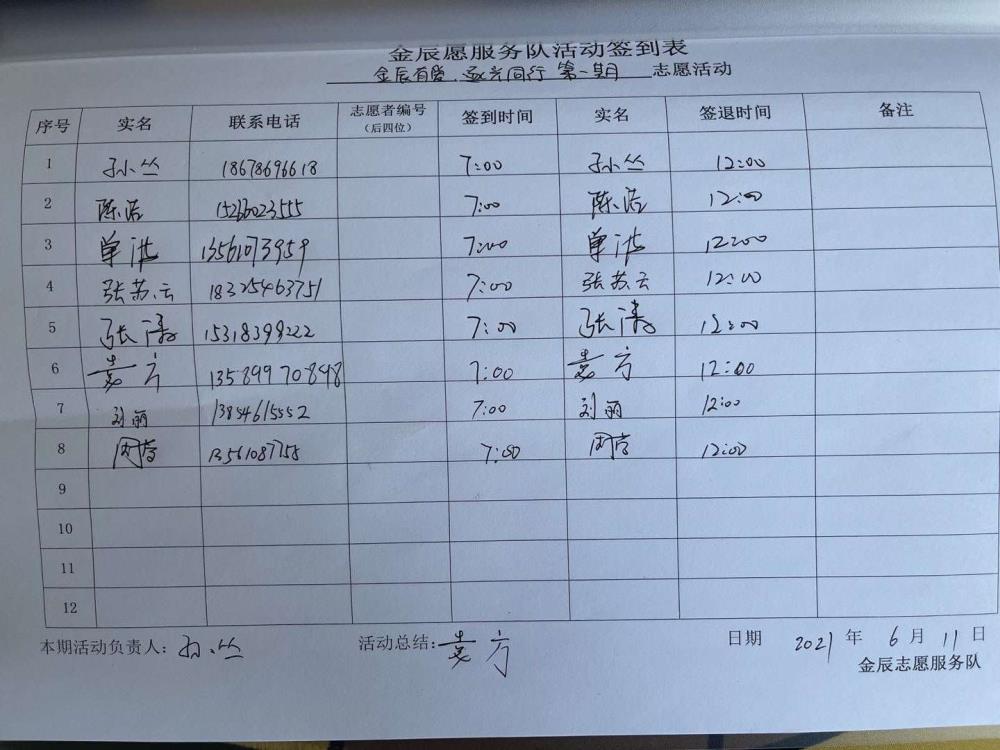 金辰愿服务队活动签到表
金辰有爱.逐光同行 第一期 志愿活动
序号 实名 联系电话 志愿者编号（后四位） 签到时间 实名 签退时间 备注
1 孙小丛 18678696618 7:00 孙小丛 12:00
2 陈浩 7:00 陈浩 12:00
3 单洪 13561073959 7:00 单洪 12:00
4 张苏云 18325463751 7:00 张苏云 12:00
5 张涛 15318399222 7:00 张涛 12:00
6 袁方 13589970898 7:00 袁方 12:00
7 刘丽 13854615552 7:00 刘丽 12:00
8 13561087758 7:00 12:00
9
10
11
12
本期活动负责人: 孙小丛 活动总结: 袁方 日期 2021 年 6 月 11 日
金辰志愿服务队